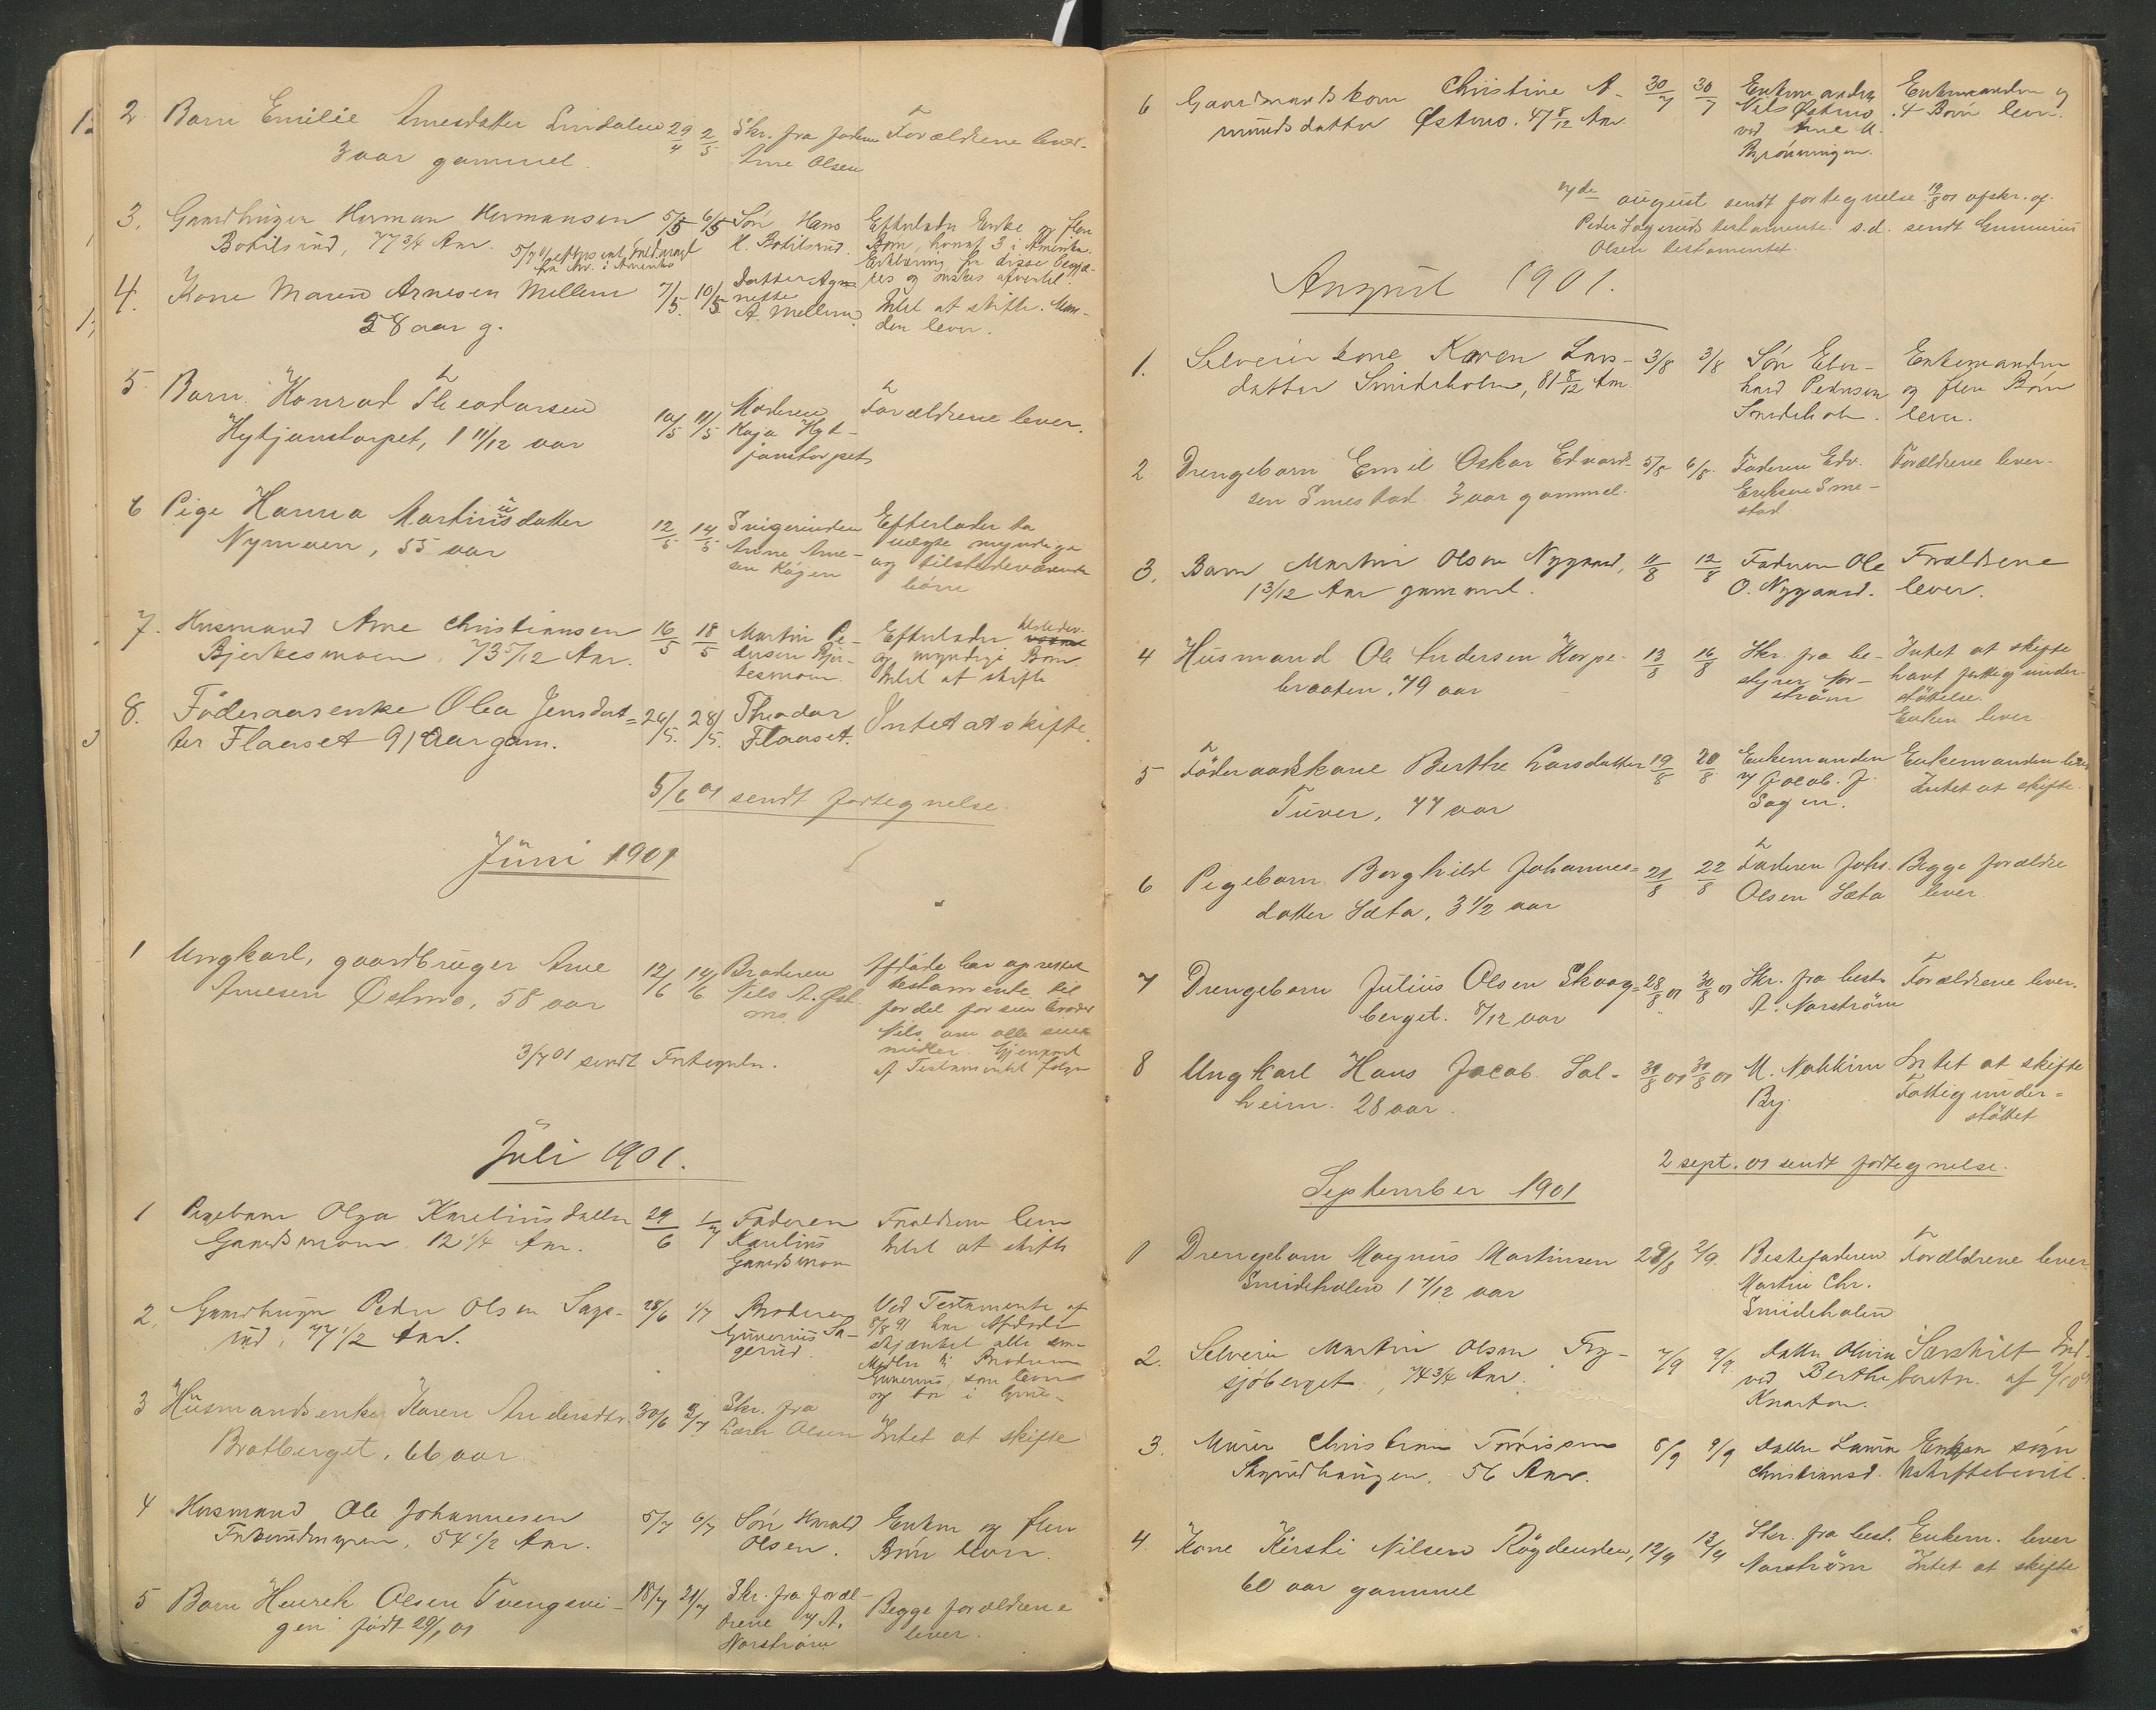 2. Barn Emilie Arnesdatter Lindalen 29/4 2/5 Skr. fra faderen Forældrene lever.
3 aar gammel. Arne Olsen
3. Gaardbruger Herman Hermansen 5/5 6/5 Søn Hans Efterlader Enke og flere
Bokilsrud, 77 3/4 Aar. H. Bokilsrud. Børn, hvoraf 3 i Amerika.
5/7 01 Erklæring fra disse begjæ-
res og ønskes afventet.
4. Kone Maren Arnesen Mellem 7/5. 10/5 Datter Agnette Intet at skifte. Man-
58 aar g. A. Mellem. den lever.
5. Barn Konrad Theodorsen 10/5 11/5 Moderen Forældrene lever.
Hytjanstorpet, 1 11/12 aar Kaja Hyt-
janstorpet
6 Pige Hanna Martinusdatter 12/5 14/5 Svigerinden Efterlader to
Nymoen, 55 aar Anne Arne- uægte myndige
sen Kögen og tilstedeværende
börn
7. Husmand Arne Christiansen 16/5 18/5 Martin Pe- Efterlader tilstedev.
Bjerkesmoen, 73 5/12 Aar. dersen Bjer- og myndige Børn.
kesmoen. Intet at skifte
8. Föderaasenke Olea Jensdat= 26/5. 28/5. Theodor Intet at skifte.
ter Flaaset 91 Aar gam. Flaaset.
5/6 01 sendt fortegnelse.
Juni 1901
1 Ungkarl, gaardbruger Arne 12/6 14/6 Broderen Afdøde har oprettet
Arnesen Østmo, 58 aar Nils A. Øst- testamente til
mo. fordel for sin broder
Nils om alle sine
midler. Gjenpart
af Testamentet følger
3/7 01 sendt Fortegneln.
Juli 1901.
1 Pigebarn Olga Kareliusdatter 29/6 1/7 Faderen Forældrene lever
Gaardsmoen 12 1/4 Aar. Karelius Intet at skifte
Gaardsmoen
2. Gaardbruger Peder Olsen Sage- 28/6 1/7 Broderen Ved Testamente af
rud, 77 1/2 Aar. Gunerius Sa- 5/8 91 har Afdøde
gerud. skjænket alle sine
Midler til Broderen
Gunerius, som lever
og bor i Grue-
3 Husmandsenke Karen Andersdtr. 30/6 3/7 Skr. fra
Bratberget, 66 aar Lars Olsen Intet at skifte
4 Husmand Ole Johannesen 5/7 6/7 Søn Harald Enken og flere
54 1/2 Aar. Olsen. Børn lever.
5 Barn Henrik Olsen Tvengsvi- 18/7 21/7 Skr. fra foræl- Begge forældrene
gen født 29/1 01 drene v/ A. lever.
Norström
6 Gaardmandskone Christine A- 30/7 30/7 Enkemanden Enkemanden og
mundsdatter Østmo. 47 8/12 Aar. Nils Østmo 4 Børn lever.
ved Arne A.
Brönningen.
2den august sendt fortegnelse. 19/8 01 afskr. af
Peder Sageruds testamente. s.d. sendt Gunnerius
Olsen testamentet.
August 1901.
1. Selveierkone Karen Lars- 3/8 3/8 Søn Eber- Enkemanden
datter Smideholen, 81 8/12 Aar. hard Pedersen og flere Børn
Smidehol. lever.
2. Drengebarn Emil Oskar Edvard- 5/8 6/8. Faderen Edv. Forældrene lever.
sen Smestad. 3 aar gammel. Eriksen Sme-
stad
3. Barn Martin Olsen Nygaard, 11/8 12/8 Faderen Ole Forældrene
1 3/12 Aar gammel. O. Nygaard. lever.
4 Husmand Ole Andersen Korpe- 13/8 16/8 Skr. fra be- Intet at skifte
braaten. 79 aar styrer Nor- havt fattigunder-
ström stöttelse.
Enken lever
5 Föderaadskone Berthe Larsdatter 19/8 20/8 Enkemanden Enkemanden lever
Tuver, 77 aar v/ Jacob. J. Intet at skifte.
Sagen.
6 Pigebarn Borghild Johannes= 21/8 22/8 Faderen Johs. Begge forældre
datter Sæta, 3 1/2 aar Olsen Sæta lever.
7 Drengebarn Julius Olsen Skaag= 28/8 01 30/8 01 Skr. fra best. Forældrene lever.
berget. 8/12 aar A. Norström
8 Ungkarl Hans Jacob Sol- 30/8 01 30/8 01 M. Nokkim Intet at skifte
heim. 28 aar. By. Fattigunder=
støttet
2 sept. 01 sendt fortegnelse.
September 1901
1 Drengebarn Magnus Martinsen 29/8 2/9. Bestefaderen Forældrene lever.
Smideholen 1 7/12 aar Martin Chr.
Smideholen
2. Selveier Martin Olsen Fry- 7/9 9/9. Datter Olivia Særskilt Ind-
sjöberget, 74 3/4 Aar. ved Berthe beretn. af 2/10 01
Knarton.
3. Murer Christian Tørrissen 8/9 9/9 Datter Laura Enken søger
56 Aar. Christiansd. Uskiftebevill.
4. Kone Kersti Nilsen Rögdenden, 12/9 13/9 Skr. fra best. Enkem. lever
60 aar gammel Norström Intet at skifte